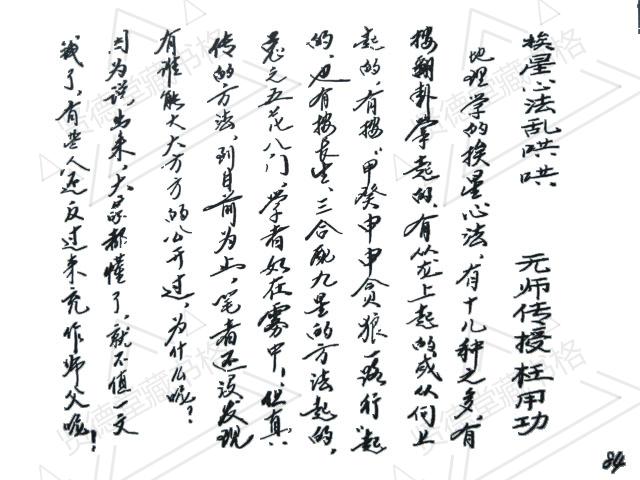 挨星心法乱哄哄 无师传授枉用功
地理学的挨星心法，有十几种之多，有
按翻卦掌起的，有从龙上起的或从向上
起的，有按“甲癸申甲贪狼一路行”起
的，也有按长生、三合配九星的方法起的，
总之五花八门，学者如在雾中，但真
传的方法，到目前为止，笔者还没发现
有谁能大大方方的公开过，为什么呢？
因为说出来，大家都懂了，就不值一文
钱了，有些人还反过来充作师父呢！
84
贤德堂藏书格